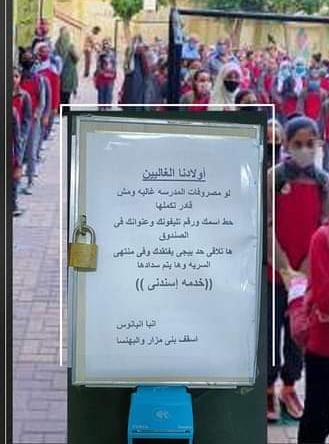 أولادنا الغاليين
لو مصروفات المدرسه غاليه ومش
قادر تكملها
حط اسمك ورقم تليفونك وعنوانك فى
الصندوق
ها تلاقى حد بيجى يفتقدك وفى منتهى
السريه وها يتم سدادها
((خدمه إسندنى ))
انبا اثيانوس
اسقف بنى مزار والبهنسا